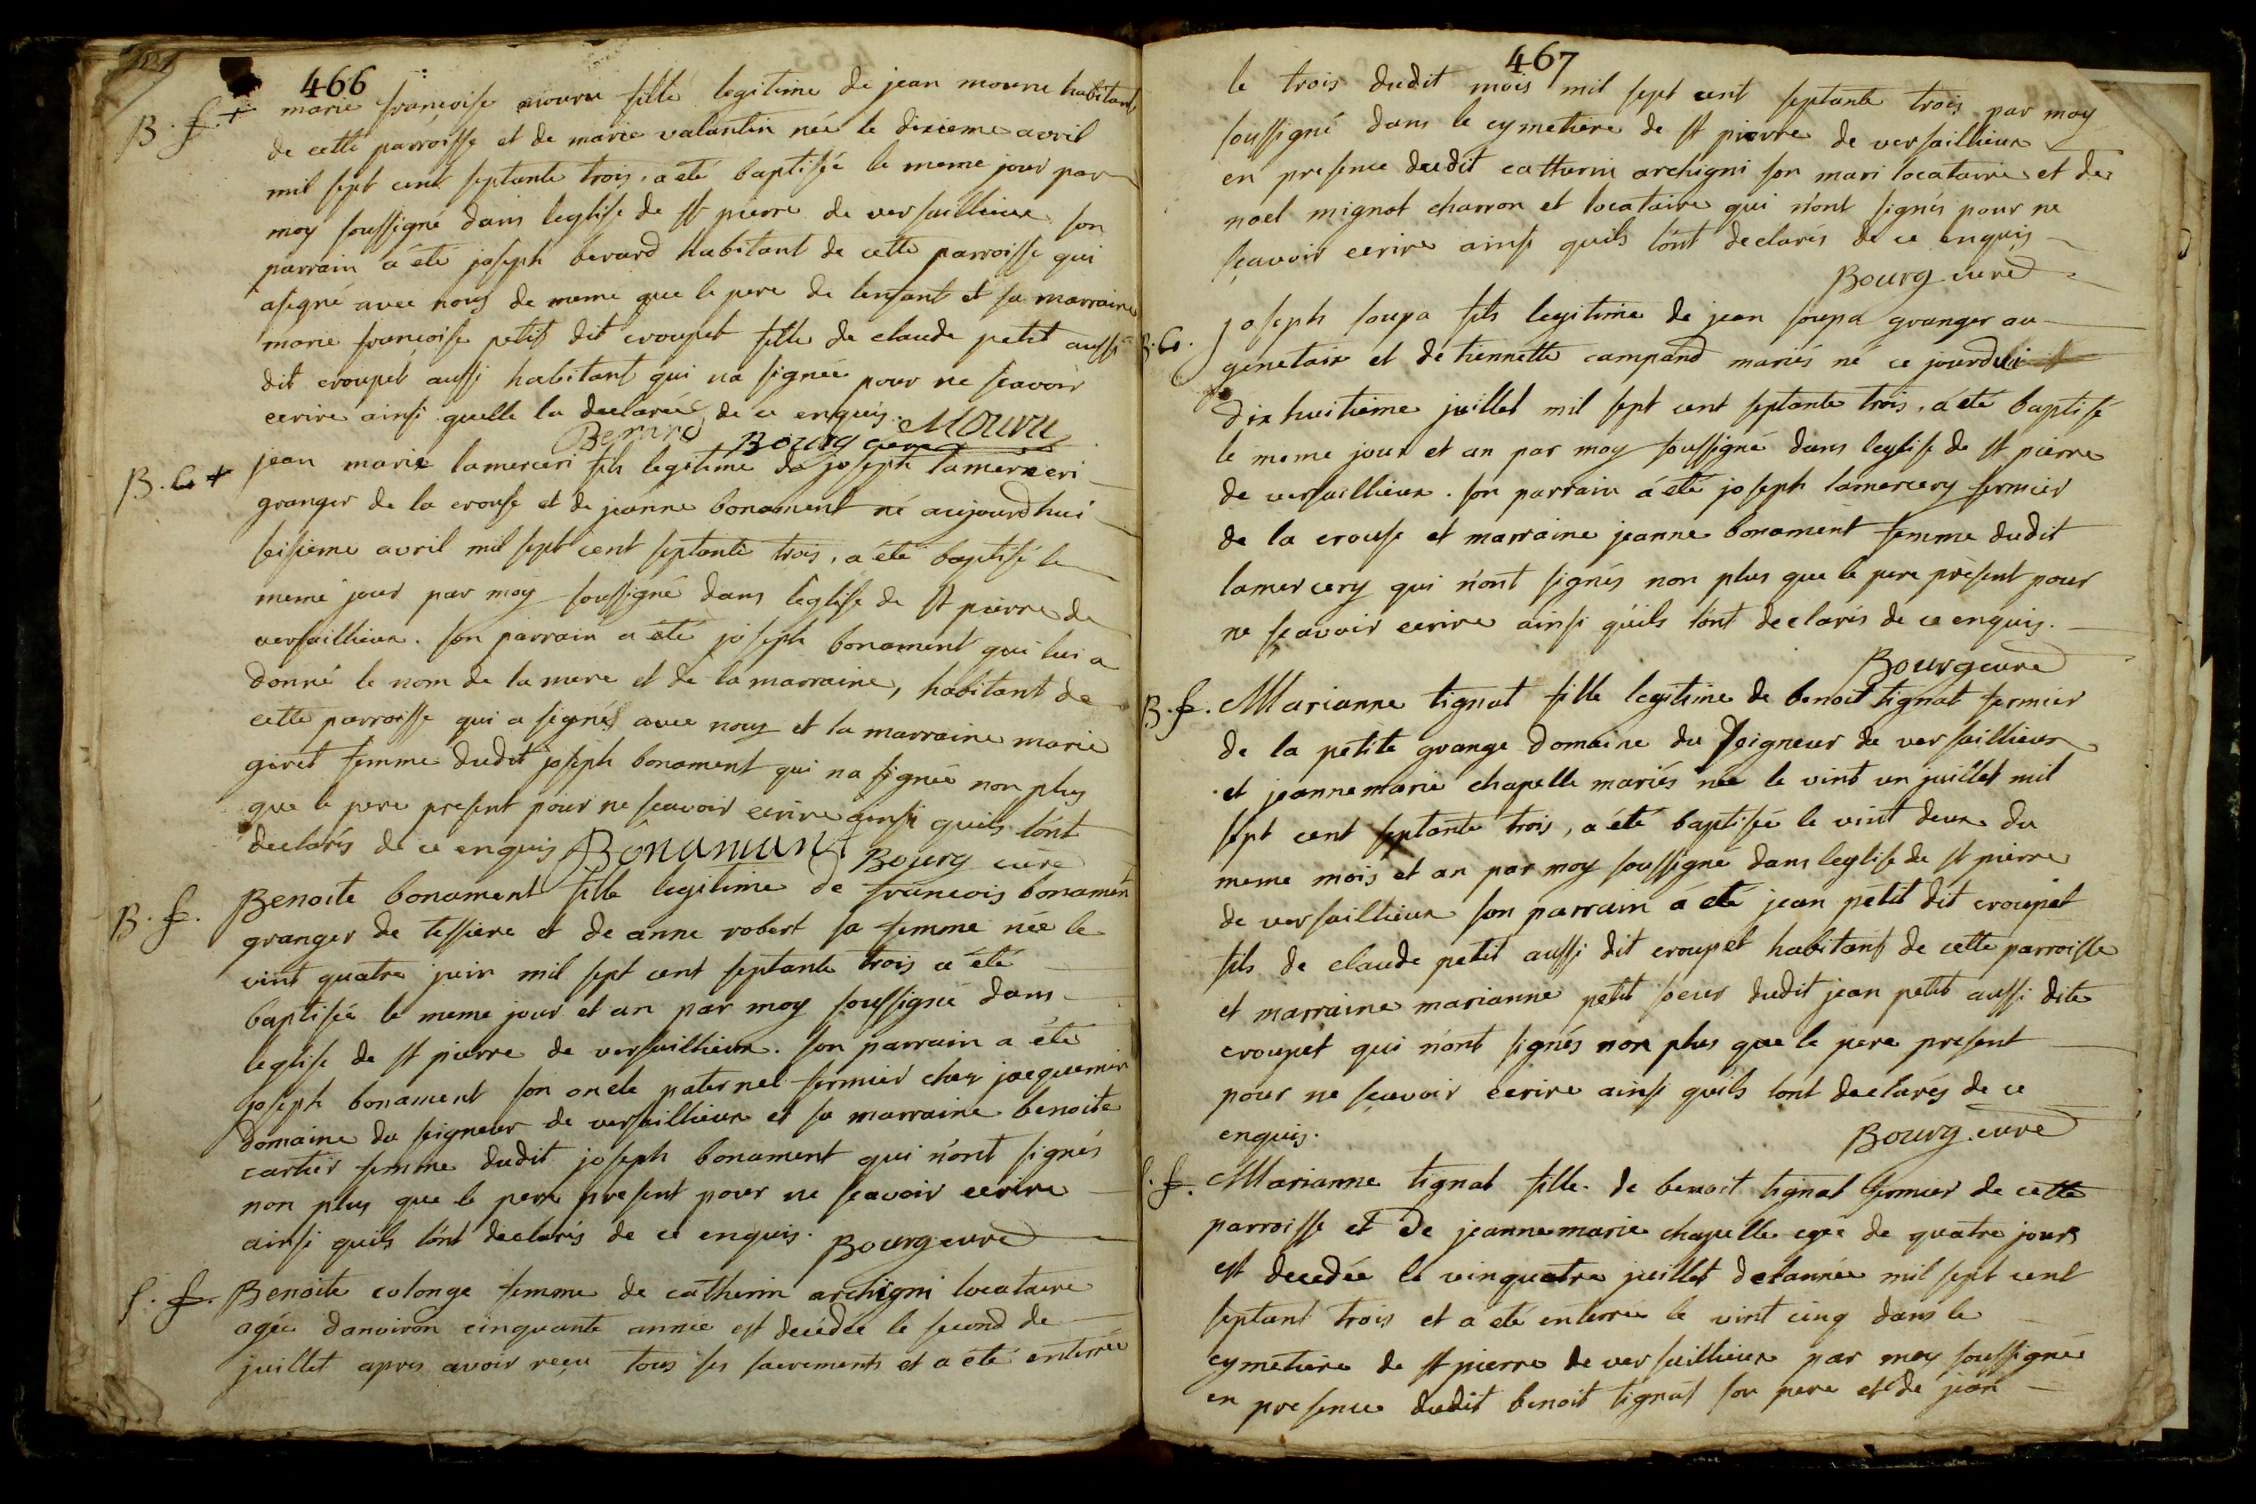 466
B. f. + marie françoise mouru fille legitime de jean mouru habitant
de cette parroisse et de marie valantin née le dixieme avril
mil sept cent septante trois, a eté baptisée le meme jour par
moy soussigné dans leglise de st pierre de versaillieux son
parrain a été joseph berard habitant de cette parroisse qui
asigné avec nous de meme que le pere de lenfant et sa marraine
marie françoise petit dit croupet fille de claude petit aussi
dit croupet aussi habitant qui na signée pour ne scavoir
ecrire ainsi quelle la declarée de ce enquis. Mouru
Berard Bourg cure
B. G + jean marie lamerceri fils legitime de joseph lamerceri
granger de la crouse et de jeanne bonament né aujourdhui
seisieme avril mil sept cent septante trois, a été baptisé le
meme jour par moy soussigné dans leglise de st pierre de
versaillieux. son parrain a été joseph bonament qui lui a
donné le nom de la mere et de la marraine, habitant de
cette parroisse qui a signés avec nous et la marraine marie
giret femme dudit joseph bonament qui na signée non plus
que le pere present pour ne scavoir ecrire ainsi quils lont
declarés de ce enquis Bonamant Bourg cure
B. f. Benoite bonament fille legitime de françois bonament
granger de tessiere et de anne robert sa femme née le
vint quatre juin mil sept cent septante trois a été
baptisée le meme jour et an par moy soussigné dans
leglise de st pierre de versaillieux. son parrain a été
joseph bonament son oncle paternel fermier chez jacquemin
domaine du seigneur de versaillieux et sa marraine benoite
cartier femme dudit joseph bonament qui n'ont signés
non plus que le pere present pour ne scavoir ecrire
ainsi quils l'ont declarés de ce enquis. Bourg cure
S. f. Benoite colonge femme de catherin archigni locataire
agée danviron cinquante année est decédée le second de
juillet apres avoir reçu tous ses sacrements et a eté enterrée
467
le trois dudit mois mil sept cent septante trois par moy
soussigné dans le cymetiere de st pierre de versaillieux
en presence dudit catherin archigni son mari locataire et de
noel mignot charron et locataire qui n'ont signés pour ne
sçavoir ecrire ainsi quils l'ont declarés de ce enquis
Bourg cure
B. G. joseph soupa fils legitime de jean soupa granger au
genetaix et de tiennette campand mariés né ce jourdui
dix huitieme juillet mil sept cent septante trois, a été baptisé
le meme jour et an par moy soussigné dans leglise de st pierre
de versaillieux. son parrain a été joseph lamercery fermier
de la crouse et marraine jeanne bonament femme dudit
lamercery qui n'ont signés non plus que le pere present pour
ne sçavoir ecrire ainsi qu'ils l'ont declarés de ce enquis.
Bourg cure
B. f. Marianne tignat fille legitime de benoit tignat fermier
de la petite grange domaine du seigneur de versaillieux
et jeanne marie chapelle mariés née le vint un juillet mil
sept cent septante trois, a été baptisée le vint deux du
meme mois et an par moy soussigné dans leglise de st pierre
de versaillieux son parrain a eté jean petit dit croupet
fils de claude petit aussi dit croupet habitant de cette parroisse
et marraine marianne petit soeur dudit jean petit aussi dite
croupet qui n'ont signés non plus que le pere present
pour ne sçavoir ecrire ainsi quils lont declarés de ce
enquis. Bourg. cure
S. f. Marianne tignat fille de benoit tignat fermier de cette
parroisse et de jeanne marie chapelle egée de quatre jours
est decedée le vinquatre juillet de lannée mil sept cent
septant trois et a eté enterrée le vint cinq dans le
cymetiere de st pierre de versaillieux par moy soussigné
en presence dudit benoit tignat son pere et de jean